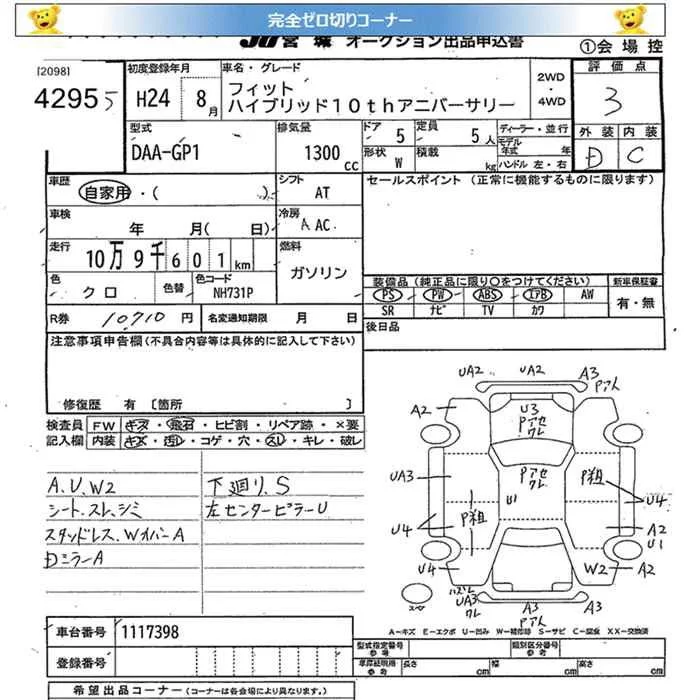 完全ゼロ切りコーナー
JU宮城 オークション出品申込書
①会場控
[2098]
4295 5
初度登録年月
H24 8月
車名・グレード
フィット
ハイブリッド10thアニバーサリー
2WD
・
4WD
評価点
3
型式
DAA-GP1
排気量
1300cc
ドア 5
定員 5人
ディーラー・並行
形状 W
積載 kg
モデル年式 年
ハンドル 左・右
外装 内装
D C
車歴
自家用・( )
シフト AT
セールスポイント (正常に機能するものに限ります)
車検
年 月( 日)
冷房
A AC.
走行
10万9千601km
燃料
ガソリン
色
クロ
色替
色コード
NH731P
装備品(純正品に限り○をつけてください)
PS PW ABS エアB AW
SR ナビ TV カワ
新車保証書
有・無
R券 10710円
名変通知期限 月 日
後日品
注意事項申告欄(不具合内容等は具体的に記入して下さい)
修復歴 有〔箇所 〕
検査員記入欄
FW キズ・飛石・ヒビ割・リペア跡・×要
内装 キズ・汚レ・コゲ・穴・スレ・キレ・破レ
A.U.W2
シート.スレ.シミ
スタッドレス.WイバーA
DミラーA
下廻り.S
左センターピラーU
UA2 UA2 A3
Pアト
A2
U3
Pアセ
クレ
Pアセ
クレ
UA3
U1
P粗
P粗
U4
U4
A2
U1
U4
W2
A2
スペア
ハズレ
UA3
クレ
A3
Pアト
A3
A-キズ E-エクボ U-凹み W-補修跡 S-サビ C-腐食 XX-交換済
車台番号 1117398
登録番号
型式指定番号
参考
類別区分番号
参考
車庫証明用
参考
長さ cm
幅 cm
高さ cm
希望出品コーナー(コーナーは各会場により異なります。)